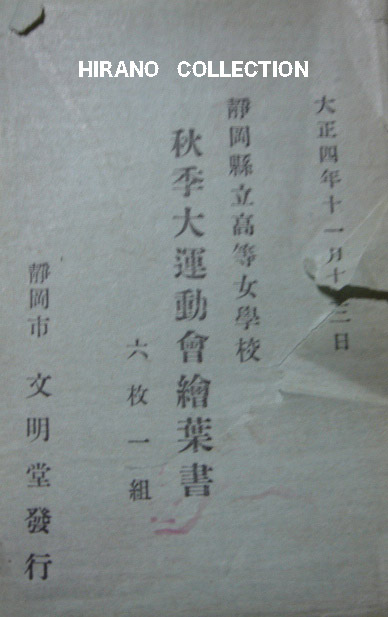 HIRANO COLLECTION
大正四年十一月十三日
靜岡縣立高等女學校
秋季大運動會繪葉書
六枚一組
靜岡市 文明堂發行